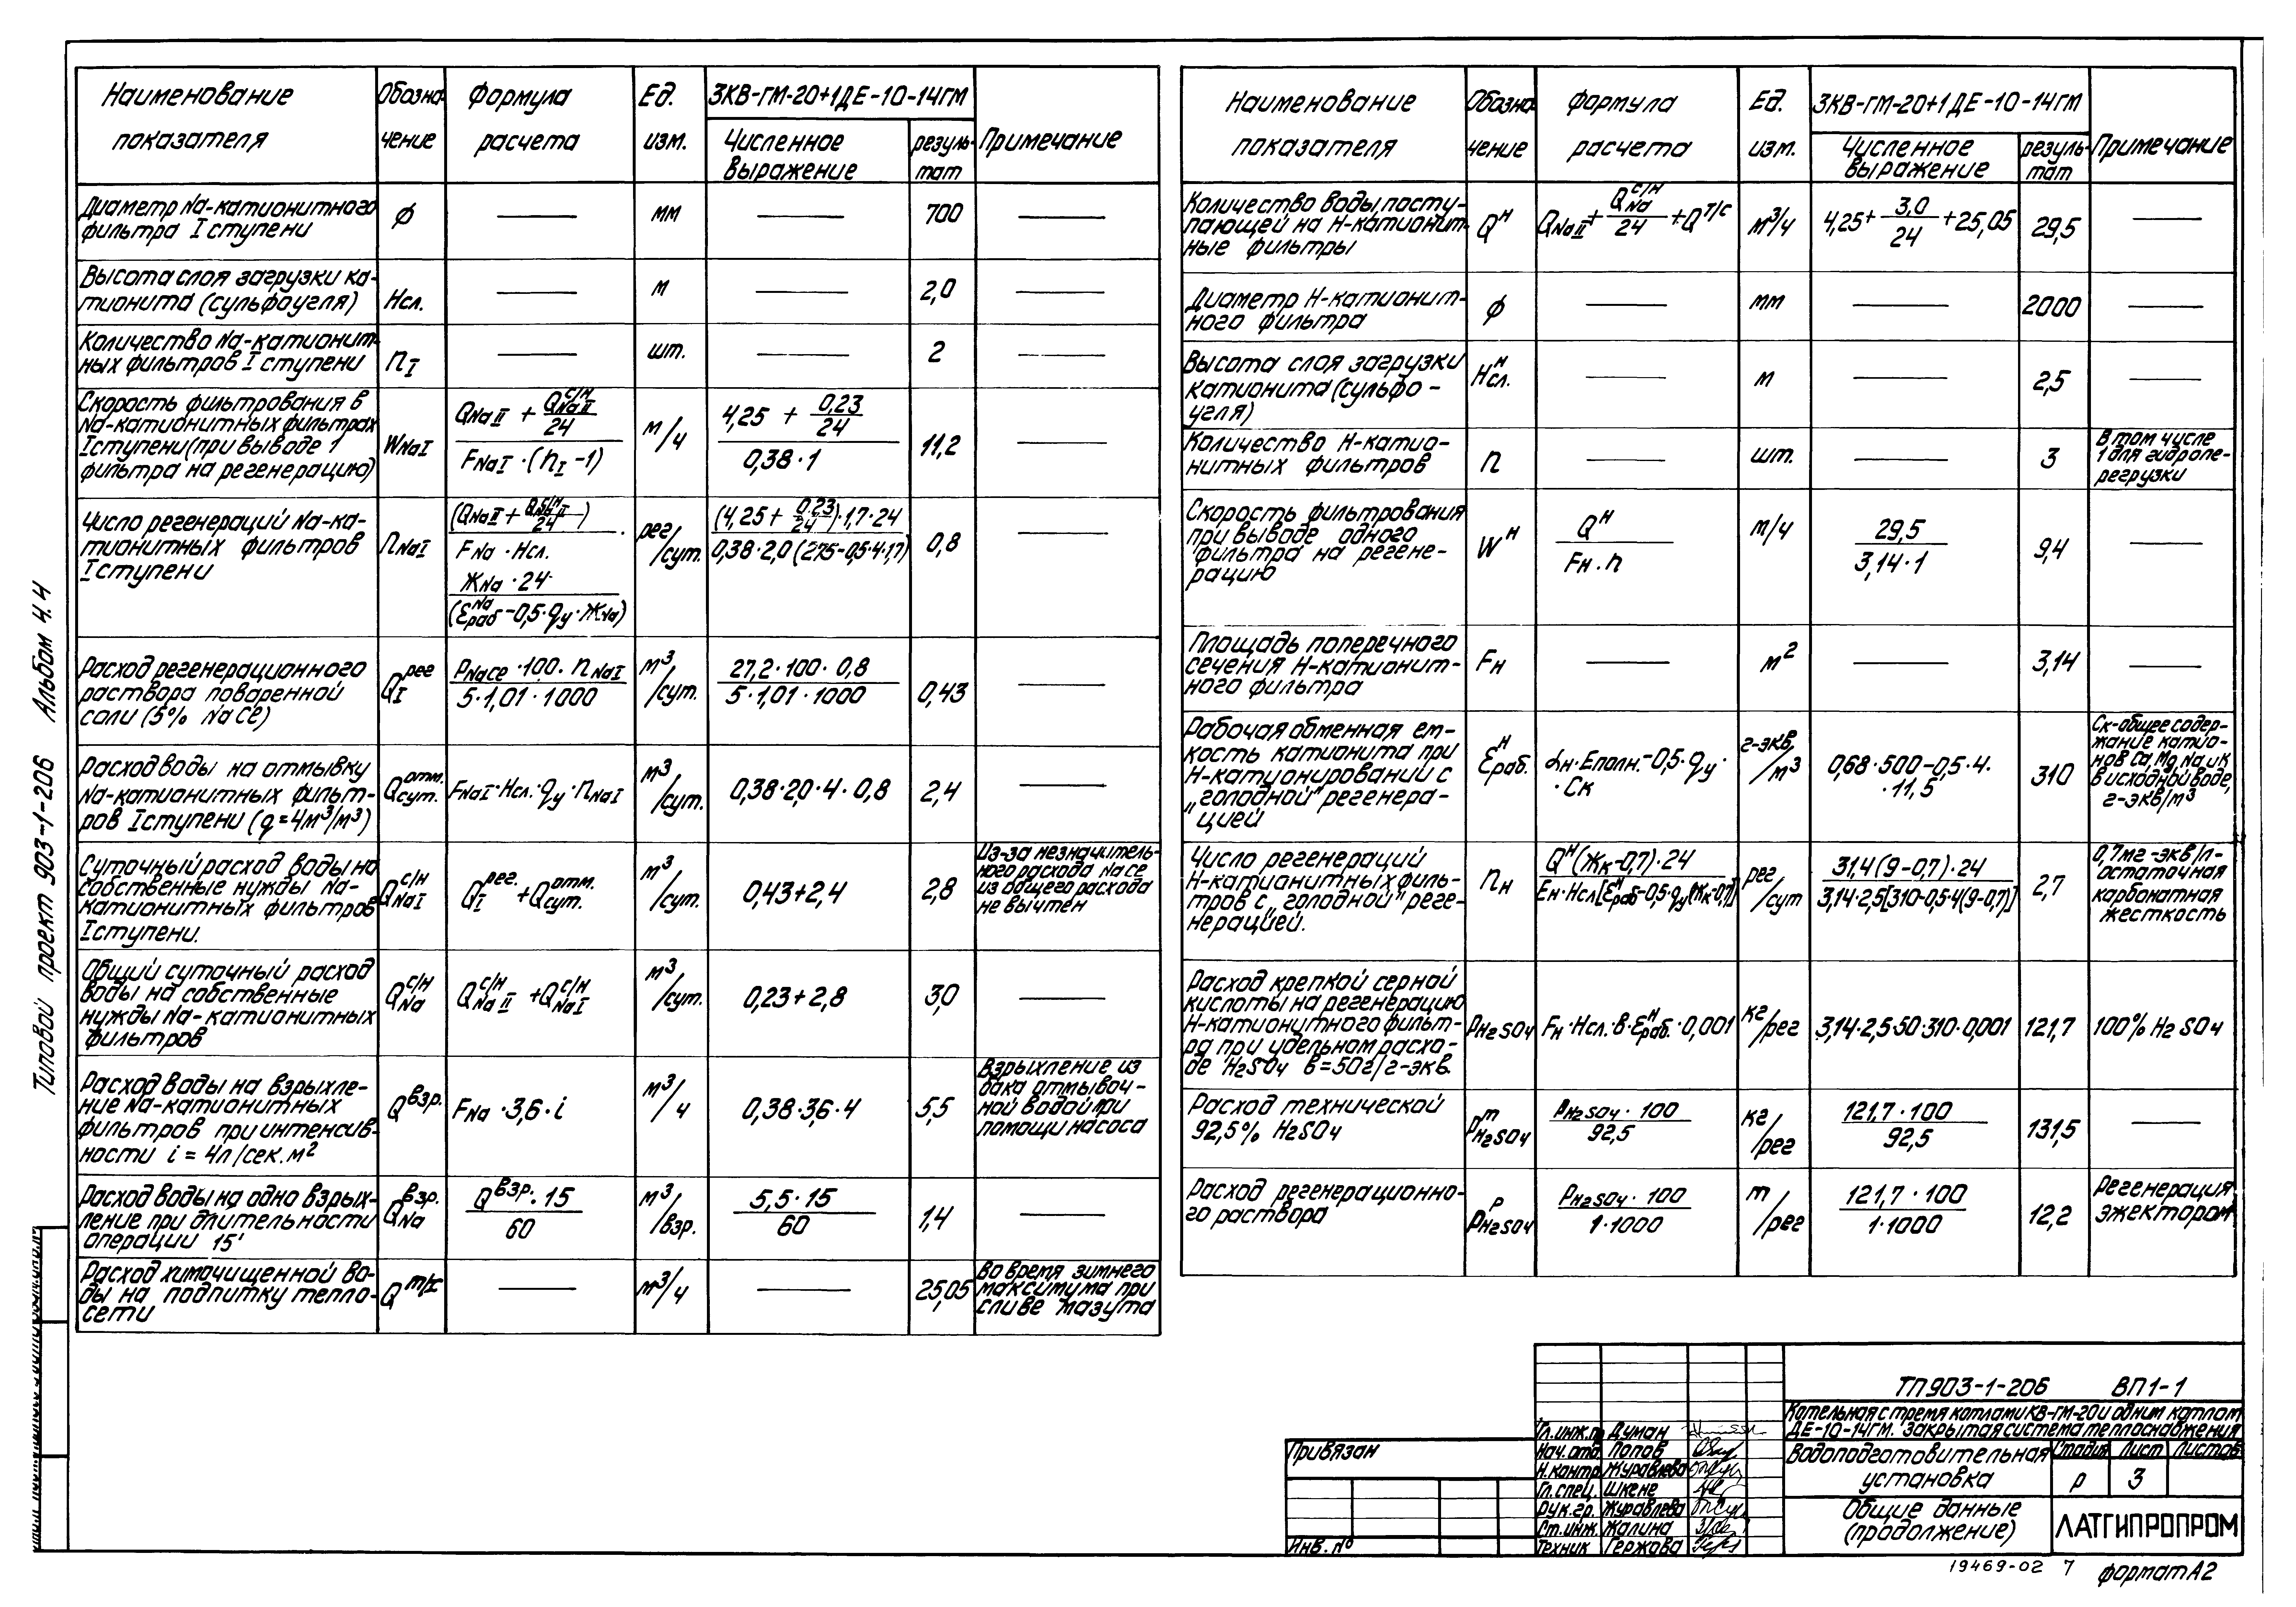 Типовой проект 903-1-206 Альбом 4.4
Наименование показателя
Обозначение
Формула расчета
Ед. изм.
3КВ-ГМ-20+1ДЕ-10-14ГМ
Численное выражение
результат
Примечание
Диаметр Na-катионитного
фильтра I ступени
ϕ
мм
700
Высота слоя загрузки ка-
тионита (сульфоугля)
Hсл.
м
2,0
Количество Na-катионит-
ных фильтров I ступени
nI
шт.
2
Скорость фильтрования в
Na-катионитных фильтрах
I ступени (при выводе 1
фильтра на регенерацию)
WNaI
QNaII + QNaII с/н / 24
FNaI · (nI -1)
м/ч
4,25 + 0,23/24
0,38·1
11,2
Число регенераций Na-ка-
тионитных фильтров
I ступени
nNaI
(QNaII + QNaII с/н / 24) ·
FNa · Hсл.
ЖNa · 24
(Eраб Na - 0,5·qу·ЖNa)
рег/сут.
(4,25 + 0,23/24)·1,7·24
0,38·2,0 (275-0,5·4·1,7)
0,8
Расход регенерационного
раствора поваренной
соли (5% NaCe)
QI рег
PNaCe · 100 · nNaI
5·1,01·1000
м3/сут.
27,2·100·0,8
5·1,01·1000
0,43
Расход воды на отмывку
Na-катионитных фильт-
ров I ступени (q=4м3/м3)
Qсут. отм.
FNaI·Hсл.·qу·nNaI
м3/сут.
0,38·2,0·4·0,8
2,4
Суточный расход воды на
собственные нужды Na-
катионитных фильтров
I ступени.
QNaI с/н
QI рег. + Qсут. отм.
м3/сут.
0,43+2,4
2,8
Из-за незначитель-
ного расхода NaCe
из общего расхода
не вычтен
Общий суточный расход
воды на собственные
нужды Na-катионитных
фильтров
QNa с/н
QNaII с/н + QNaI с/н
м3/сут.
0,23+2,8
3,0
Расход воды на взрыхле-
ние Na-катионитных
фильтров при интенсив-
ности i = 4л/сек.м2
Q взр.
FNa · 3,6 · i
м3/ч
0,38·3,6·4
5,5
Взрыхление из
бака отмывоч-
ной водой при
помощи насоса
Расход воды на одно взрых-
ление при длительности
операции 15'
QNa взр.
Q взр. · 15
60
м3/взр.
5,5·15
60
1,4
Расход химочищенной во-
ды на подпитку тепло-
сети
Q т/с
м3/ч
25,05
Во время зимнего
максимума при
сливе мазута
Наименование показателя
Обозначение
Формула расчета
Ед. изм.
3КВ-ГМ-20+1ДЕ-10-14ГМ
Численное выражение
результат
Примечание
Количество воды посту-
пающей на Н-катионит-
ные фильтры
Q н
QNaII + QNa с/н / 24 + Q т/с
м3/ч
4,25 + 3,0/24 + 25,05
29,5
Диаметр Н-катионит-
ного фильтра
ϕ
мм
2000
Высота слоя загрузки
катионита (сульфо-
угля)
Hсл. н
м
2,5
Количество Н-катио-
нитных фильтров
n
шт.
3
В том числе
1 для гидропе-
регрузки
Скорость фильтрования
при выводе одного
фильтра на регене-
рацию
W н
Q н
Fн · n
м/ч
29,5
3,14·1
9,4
Площадь поперечного
сечения Н-катионит-
ного фильтра
Fн
м2
3,14
Рабочая обменная ем-
кость катионита при
Н-катионировании с
„голодной" регенера-
цией
Eраб. н
αн·Eполн.-0,5·qу·
·Ск
г-экв/м3
0,68·500-0,5·4·
·11,5
310
Ск-общее содер-
жание катио-
нов Ca, Mg, Na и K
в исходной воде,
г-экв/м3
Число регенераций
Н-катионитных филь-
тров с „голодной" реге-
нерацией.
nн
Q н (Жк-0,7)·24
Fн·Hсл[Eраб н-0,5·qу(Жк-0,7)]
рег/сут
31,4(9-0,7)·24
3,14·2,5[310-0,5·4(9-0,7)]
2,7
0,7мг-экв/л-
остаточная
карбонатная
жесткость
Расход крепкой серной
кислоты на регенерацию
Н-катионитного фильт-
ра при удельном расхо-
де H2SO4 в=50г/г-экв.
PH2SO4
Fн·Hсл.·в·Eраб. н·0,001
кг/рег
3,14·2,5·50·310·0,001
121,7
100% H2SO4
Расход технической
92,5% H2SO4
PH2SO4 т
PH2SO4 · 100
92,5
кг/рег
121,7·100
92,5
131,5
Расход регенерационно-
го раствора
PH2SO4 р
PH2SO4 · 100
1·1000
т/рег
121,7·100
1·1000
12,2
Регенерация
эжектором
ТП 903-1-206 ВП1-1
Котельная с тремя котлами КВ-ГМ-20 и одним котлом
ДЕ-10-14ГМ. Закрытая система теплоснабжения
Водоподготовительная
установка
Стадия Лист Листов
Р 3
Общие данные
(продолжение)
ЛАТГИПРОПРОМ
Гл.инж.п Думан
Нач.отд. Попов
Н.контр. Журавлева
Гл.спец. Шкене
Рук.гр. Журавлева
Ст.инж. Жалина
Техник Гержова
Привязан
Инв. №
19469-02 7
формат А2